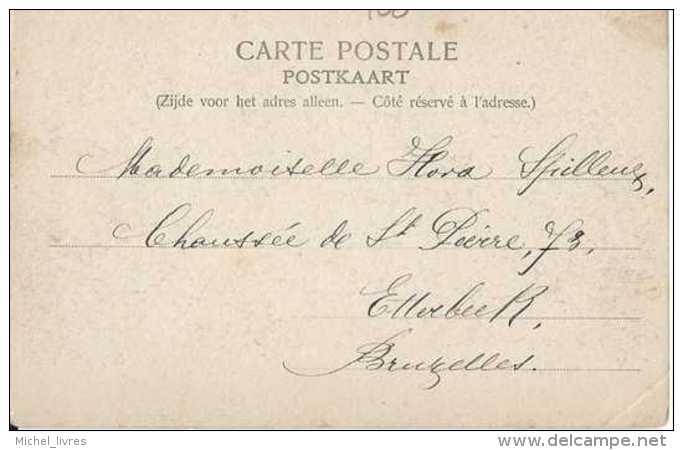 100
CARTE POSTALE
POSTKAART
(Zijde voor het adres alleen. — Côté réservé à l'adresse.)
Mademoiselle Flora
Chaussée de St Pierre, 73,
Etterbeek,
Bruxelles.
Michel_livres
http://www.delcampe.net